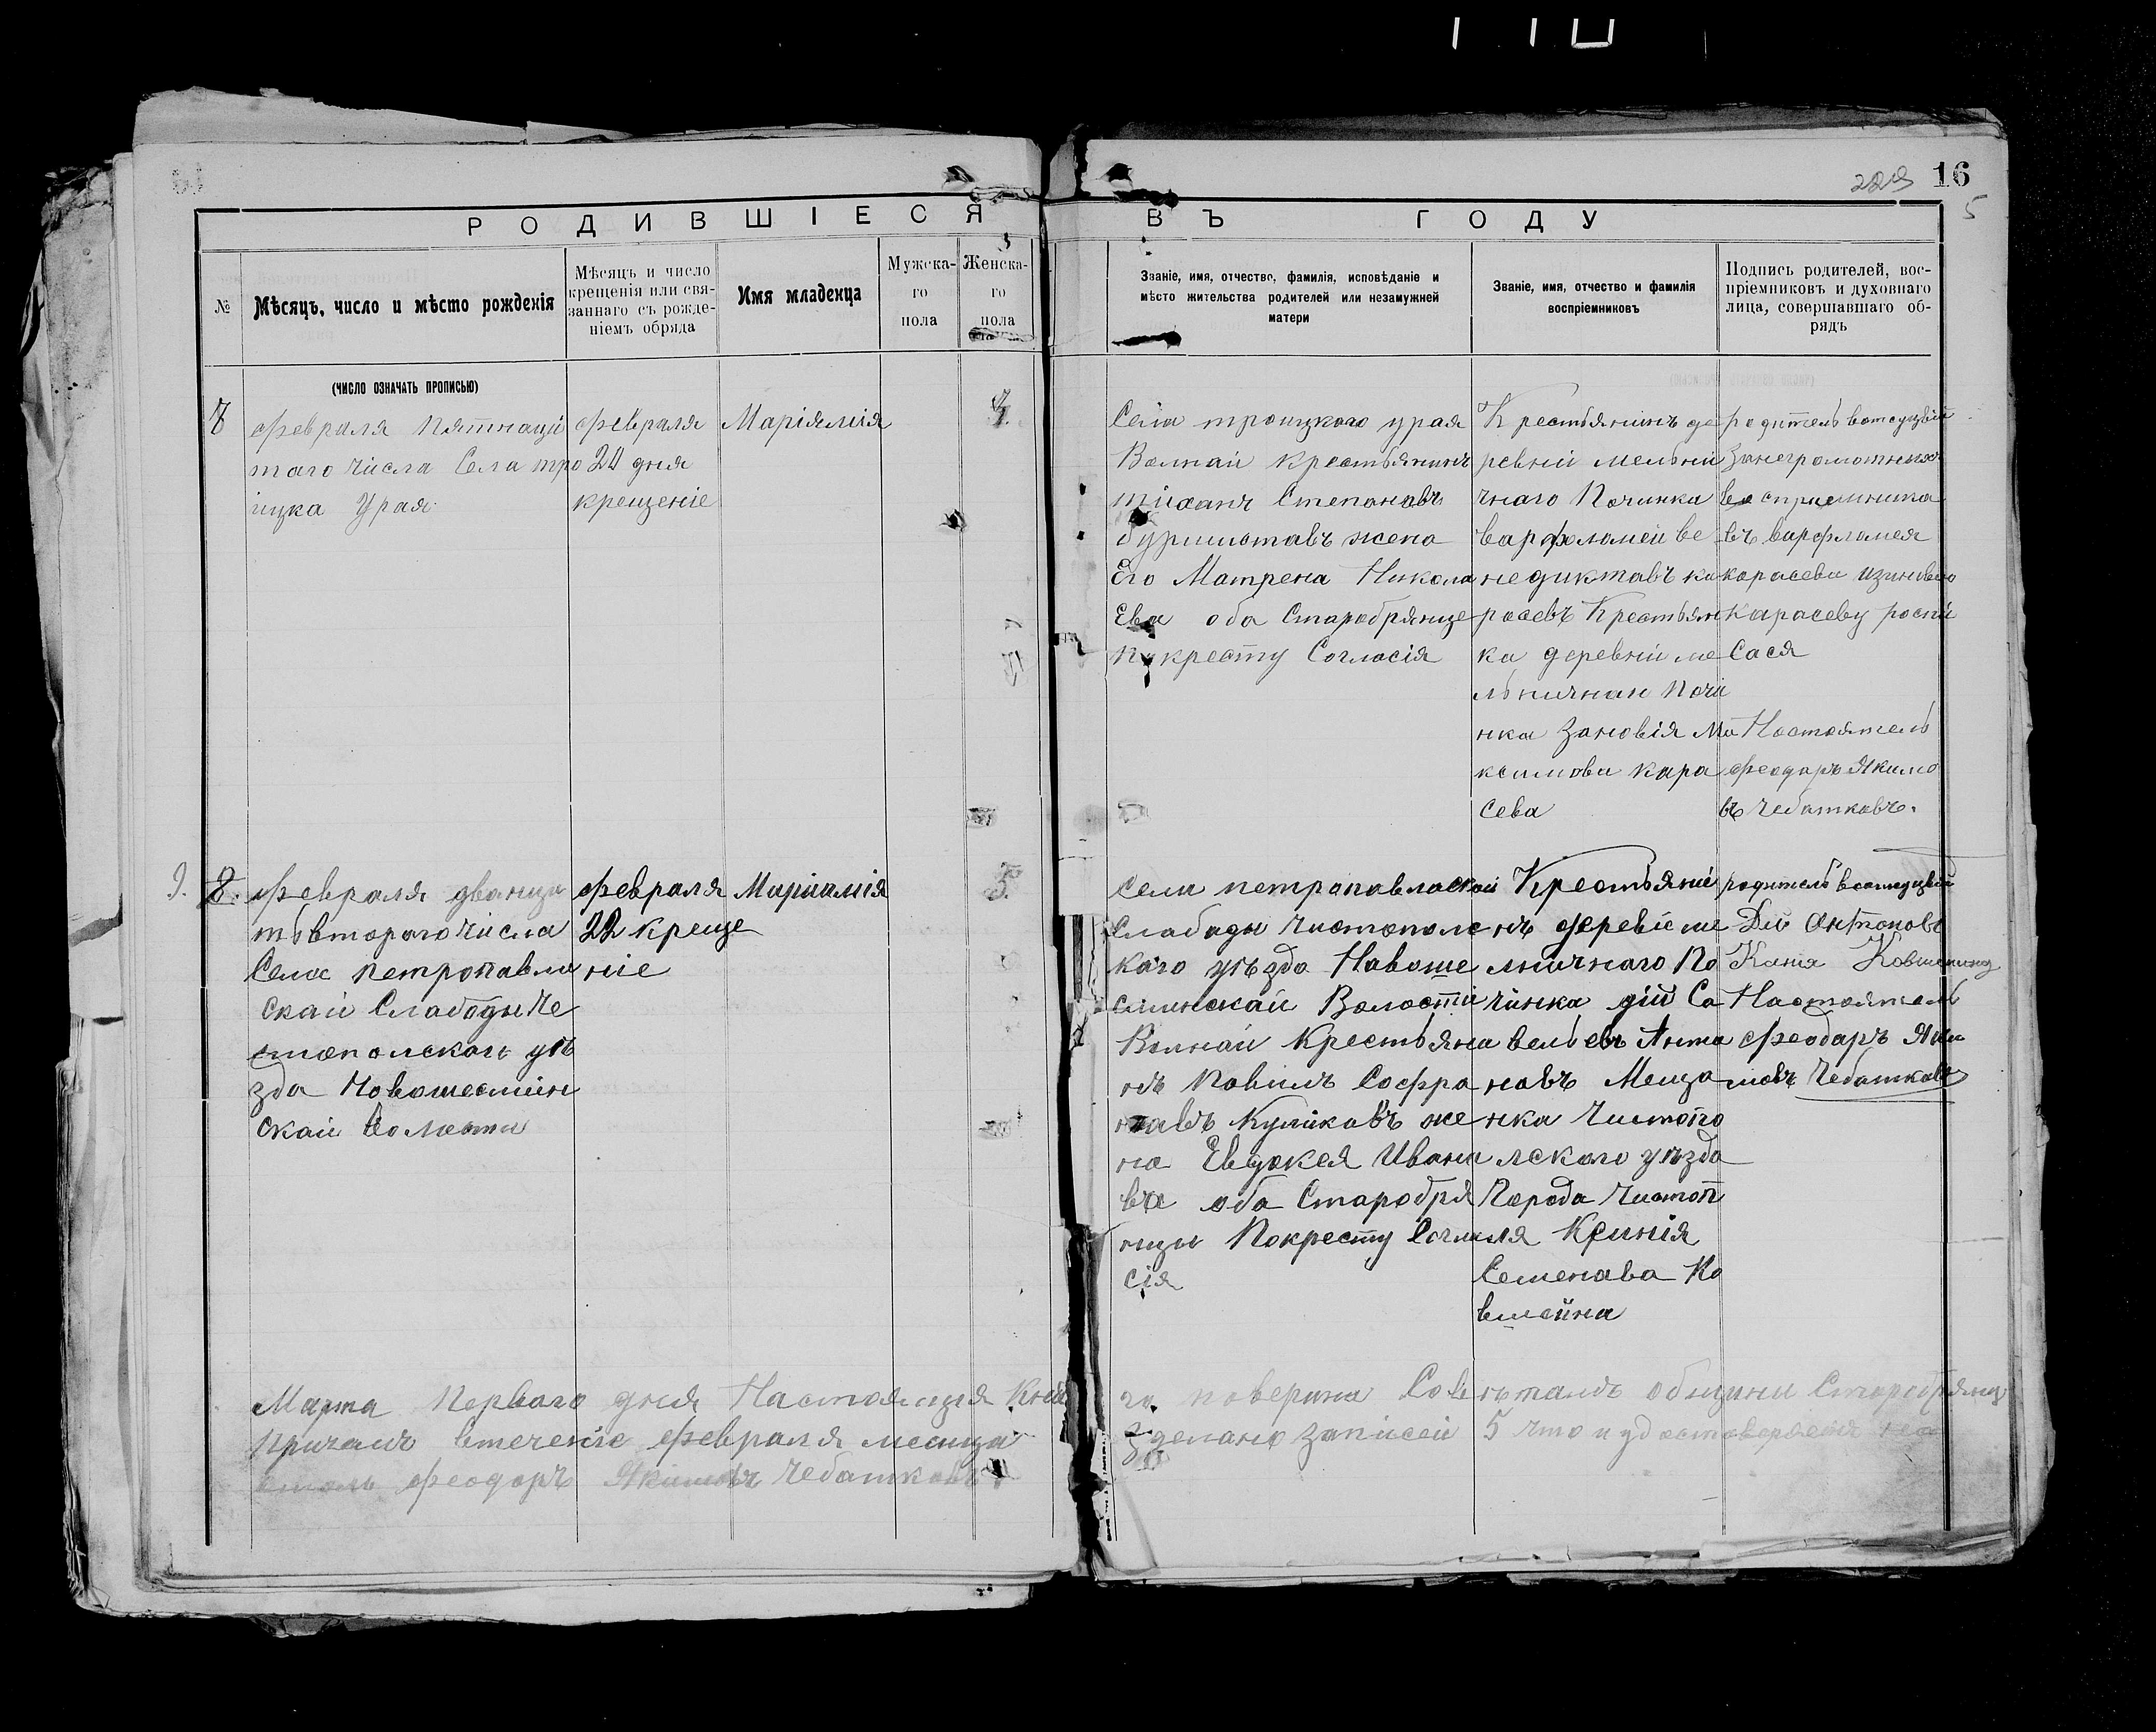 229 16
5
РОДИВШІЕСЯ ВЪ ГОДУ
№
Мѣсяцъ, число и мѣсто рожденія
Мѣсяцъ и число
крещенія или свя-
заннаго съ рожде-
ніемъ обряда
Имя младенца
Мужска-
го
пола
Женска-
го
пола
Званіе, имя, отчество, фамилія, исповѣданіе и
мѣсто жительства родителей или незамужней
матери
Званіе, имя, отчество и фамилія
воспріемниковъ
Подпись родителей, вос-
пріемниковъ и духовнаго
лица, совершавшаго об-
рядъ
(число означать прописью)
8
февраля пятнаци
таго числа Села тро
ицка Урая
февраля
24 дня
крещеніе
Маріямія
4.
Села троицкого урая
Волнаи крестьянинъ
тиханъ Степановъ
бурмиотавъ жена
Его Матрена Никола
Ева оба Старобрянце
по кресту Согласія
Крестьянинъ де
ревніи мельни
чнаго Починка
варфоломеи ве
недиктавъ ка
росевъ Крестьян
ка деревніи ме
льничнаи Почи
нка Зановія Ма
ксимова Кара
сева
родитель вотсуцвіи
Занеграмотныхъ
воспріемника
въ варфламея
карасева изиновею
карасеву роспи
Сася
Настоятель
феодаръ Якимо
въ Чебатковъ.
9. 8.
февраля дванца
тьвтораго числа
Села петропавла
скаи Слабоды Чи
стопольскаго уѣ
зда Новошешмин
скаи Воласти
февраля
22 креще
ніе
Мариамія
5.
Села петропавласкаи
Слабоды чистополс
каго уѣзда Навоше
шминскаи Воласти
Волнаи Крестьяни
нъ Павилъ Софра
навъ Куликавъ же
на Евдокея Ивана
ва оба Старобря
нцы Покресту Согла
сія
Крестьяні
нъ деревіе ме
лничнаго По
чинка дій Са
вельевъ Анта
навъ Меща
нка Чистопо
лскаго уѣзда
Города Чистоп
ля Ксинія
Семенава Ко
вшейна
родитель вотсуцвіи
Дій Антоновъ
Ксния Ковшеина
Настоятель
феодаръ Яки
мовъ Чебатковъ
Марта Перваго дня Настоящія Кни
га поверина Советамъ общини Старобрянц
Причемъ втеченіе февраля месица
зделано записеи 5 что и удостоверяемъ
феодоръ Якимовъ Чебатковъ